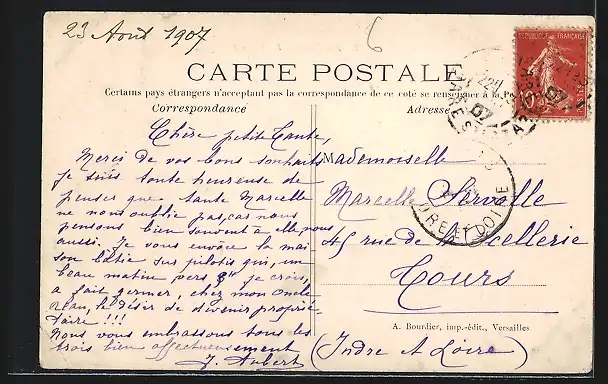 23 Août 1907
6
CARTE POSTALE
Certains pays étrangers n'acceptant pas la correspondance de ce coté se renseigner à la Poste
Correspondance
Adresse
REPUBLIQUE FRANÇAISE
10
Chère petite Tante,
Merci de vos bons souhaits
je suis toute heureuse de
penser que tante Marcelle
ne nous oublie pas, car nous
pensons bien souvent à elle nous
aussi. Je vous envoie la mai
son bâtie sur pilotis qui, un
beau matin vers je crois,
a fait germer, chez mon oncle
le désir de devenir proprié
taire !!!
Nous vous embrassons tous les
trois bien affectueusement
J. Aubert
Mademoiselle
Marcelle Servolle
45 rue de
Tours
(Indre et Loire)
A. Bourdier, imp.-édit., Versailles
INDRE ET LOIRE
07